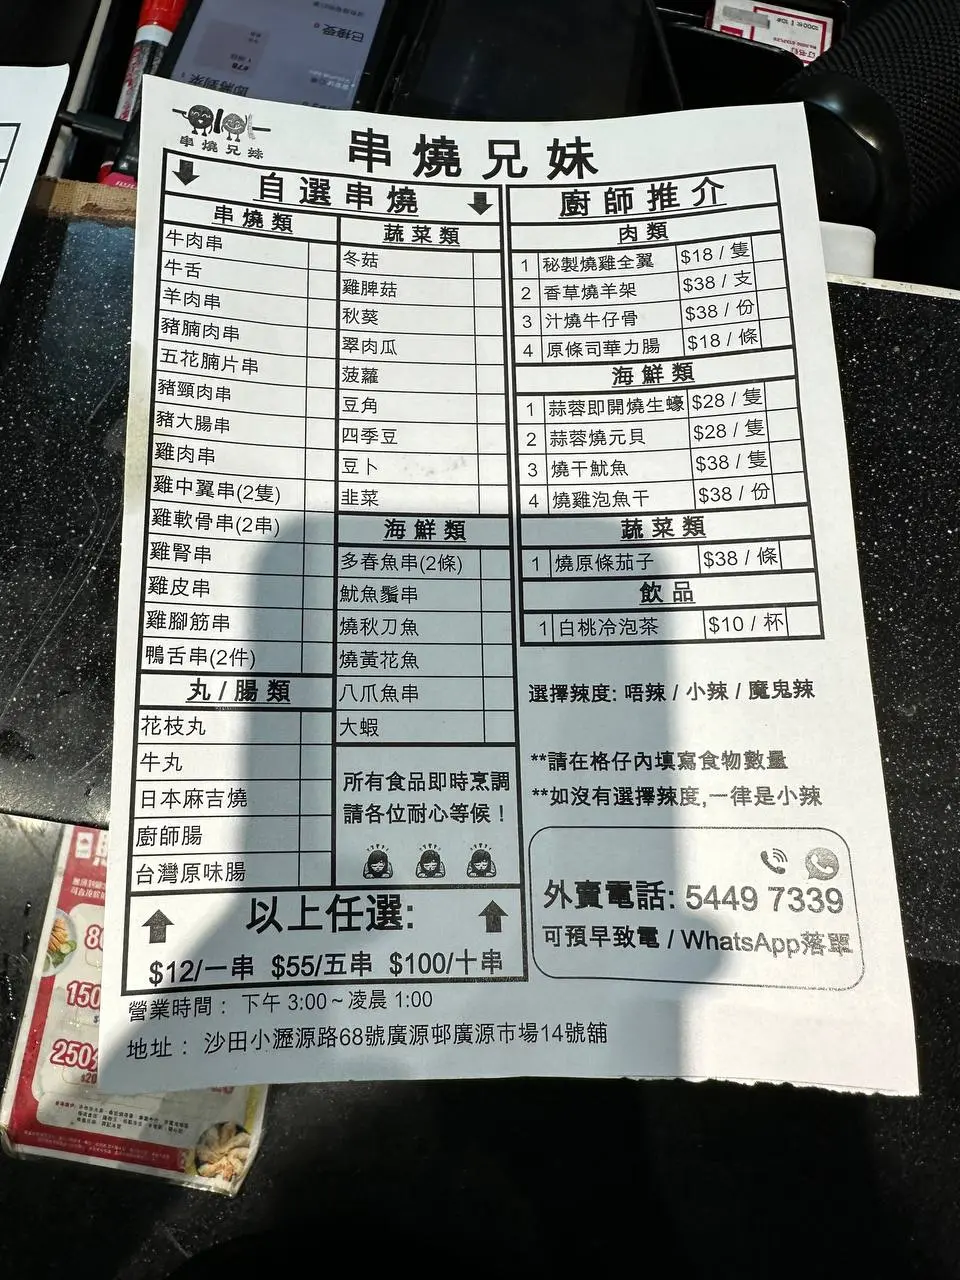 串燒兄妹
串燒兄妹
自選串燒
串燒類
牛肉串
牛舌
羊肉串
豬腩肉串
五花腩片串
豬頸肉串
豬大腸串
雞肉串
雞中翼串(2隻)
雞軟骨串(2串)
雞腎串
雞皮串
雞腳筋串
鴨舌串(2件)
丸/腸類
花枝丸
牛丸
日本麻吉燒
廚師腸
台灣原味腸
蔬菜類
冬菇
雞脾菇
秋葵
翠肉瓜
菠蘿
豆角
四季豆
豆卜
韭菜
海鮮類
多春魚串(2條)
魷魚鬚串
燒秋刀魚
燒黃花魚
八爪魚串
大蝦
所有食品即時烹調
請各位耐心等候！
以上任選:
$12/一串 $55/五串 $100/十串
廚師推介
肉類
1 秘製燒雞全翼 $18 / 隻
2 香草燒羊架 $38 / 支
3 汁燒牛仔骨 $38 / 份
4 原條司華力腸 $18 / 條
海鮮類
1 蒜蓉即開燒生蠔 $28 / 隻
2 蒜蓉燒元貝 $28 / 隻
3 燒干魷魚 $38 / 隻
4 燒雞泡魚干 $38 / 份
蔬菜類
1 燒原條茄子 $38 / 條
飲品
1 白桃冷泡茶 $10 / 杯
選擇辣度: 唔辣 / 小辣 / 魔鬼辣
**請在格仔內填寫食物數量
**如沒有選擇辣度,一律是小辣
外賣電話: 5449 7339
可預早致電 / WhatsApp落單
營業時間： 下午 3:00 ~ 凌晨 1:00
地址： 沙田小瀝源路68號廣源邨廣源市場14號舖
已接受
即將到來
150
250